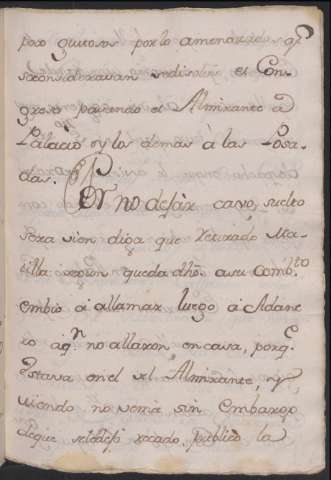 pero gustosos por lo amenazados q^e
se consideravan se disolvio el Con-
greso payendo el Almirante a
Palacio y los demas a las Posa-
das.
Por no dejar cavo suelto
sera bien diga que retirado Ma-
tilla segun queda dho. a su Comb.^to
embio a allamar luego a Adane
ro a q.^n no allaron, en casa, porq.^e
estava en el del Almirante, y
viendo no venia sin embargo
de que se le dejo recado, publico la